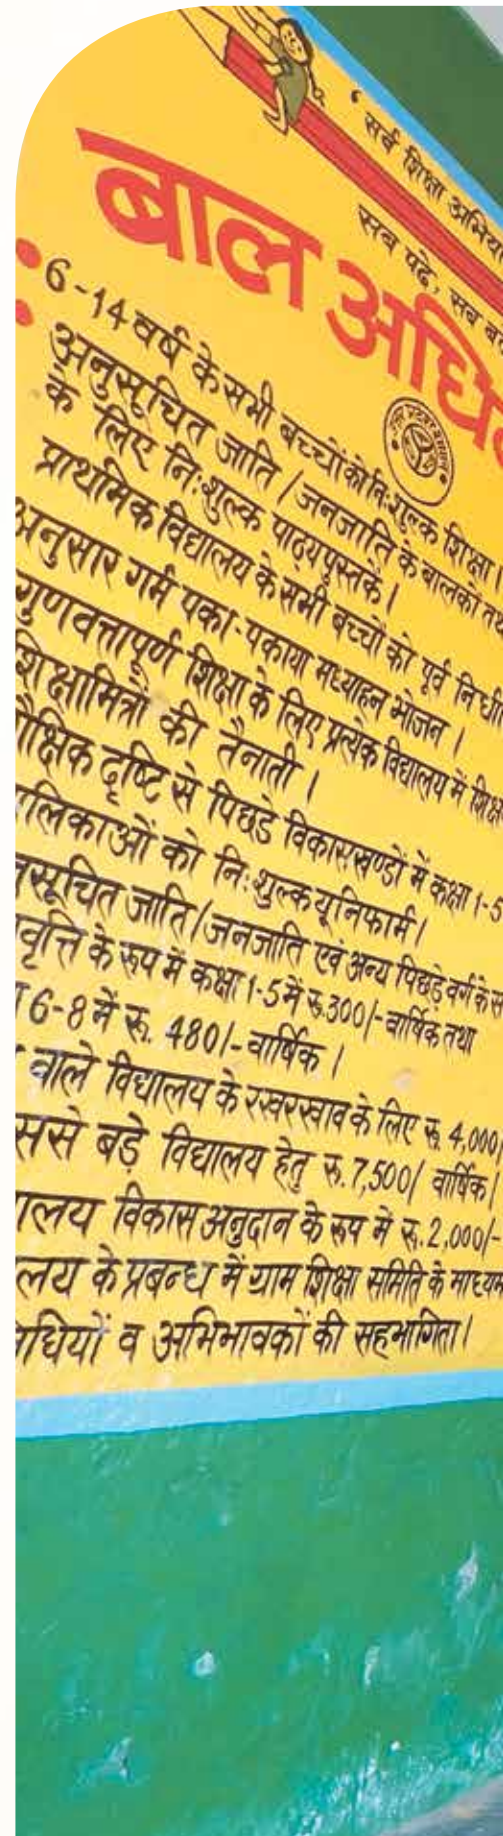 'सर्व शिक्षा अभिया
सब पढे, सब बढ
बाल अधिक
6-14 वर्ष के सभी बच्चों को निःशुल्क शिक्षा।
अनुसूचित जाति/जनजाति के बालकों तथ
के लिए निःशुल्क पाठ्यपुस्तकें।
प्राथमिक विद्यालय के सभी बच्चों को पूर्व निर्धारि
अनुसार गर्म पका-पकाया मध्याहन भोजन।
गुणवत्तापूर्ण शिक्षा के लिए प्रत्येक विद्यालय में शिक्ष
शिक्षामित्रों की तैनाती।
शैक्षिक दृष्टि से पिछडे विकासखण्डों में कक्षा 1-5
ालिकाओं को निःशुल्क यूनिफार्म।
नुसूचित जाति/जनजाति एवं अन्य पिछड़े वर्ग के स
वृत्ति के रूप में कक्षा 1-5 में रू.300/- वार्षिक तथा
ा 6-8 में रू. 480/- वार्षिक।
वाले विद्यालय के रखरखाव के लिए रू 4,000/
ससे बड़े विद्यालय हेतु रू.7,500/ वार्षिक।
ालय विकास अनुदान के रूप में रू.2,000/-
लय के प्रबन्ध में ग्राम शिक्षा समिति के माध्यम
धियों व अभिभावकों की सहभागिता।